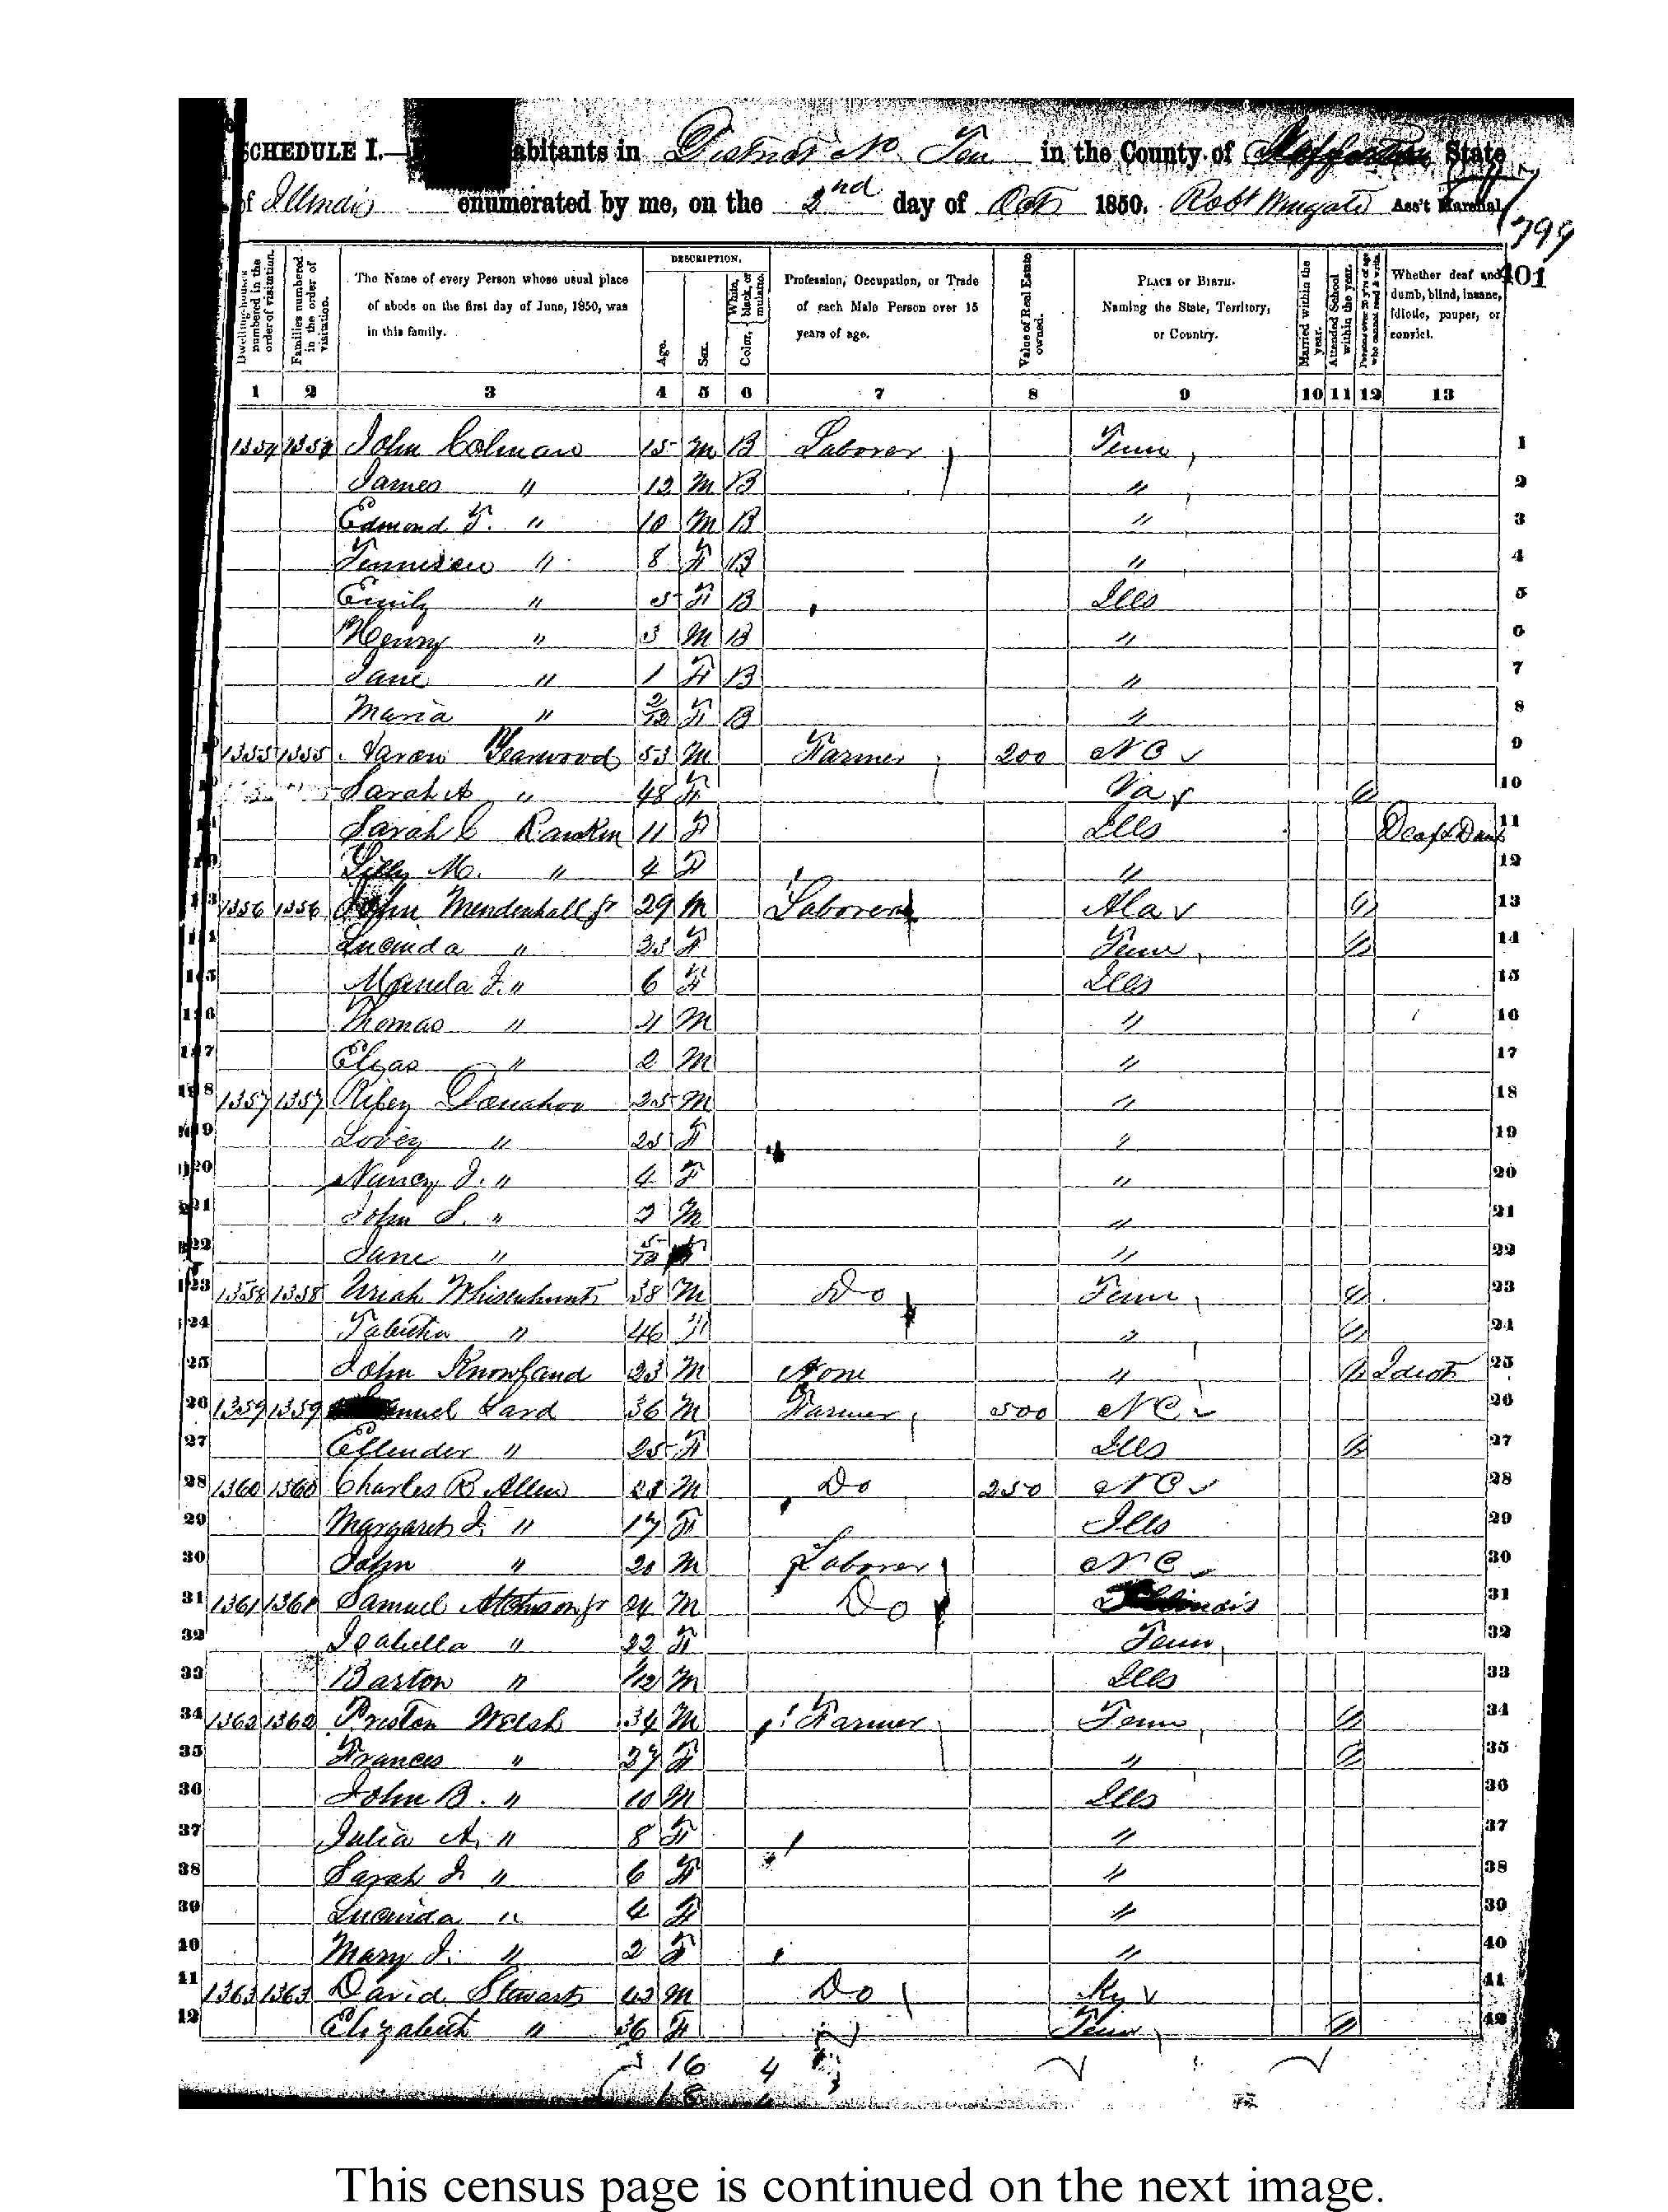 SCHEDULE I. abitants in District No Ten in the County of Jefferson State
of Illinois enumerated by me, on the 2nd day of Oct 1850. Robt Wingate Ass't Marshal
799
401
Dwelling-houses numbered in the order of visitation.
Families numbered in the order of visitation.
The Name of every Person whose usual place of abode on the first day of June, 1850, was in this family.
DESCRIPTION.
Age.
Sex.
Color, White, black, or mulatto.
Profession, Occupation, or Trade of each Male Person over 15 years of age.
Value of Real Estate owned.
PLACE OF BIRTH. Naming the State, Territory, or Country.
Married within the year.
Attended School within the year.
Persons over 20 y'rs of age who cannot read & write.
Whether deaf and dumb, blind, insane, idiotic, pauper, or convict.
1 2 3 4 5 6 7 8 9 10 11 12 13
1354 1354 John Colman 15 M B Laborer Tenn 1
James " 12 M B " 2
Edmond T. " 10 M B " 3
Tennissee " 8 F B " 4
Emily " 5 F B Ills 5
Henry " 3 M B " 6
Jane " 1 F B " 7
Maria " 2/12 F B " 8
1355 1355 Aaron Yearwood 53 M Farmer 200 NC 9
Sarah A " 48 F Va 10
Sarah C Rankin 11 F Ills Deaf & Dumb 11
Lilly M. " 4 F " 12
1356 1356 John Mendenhall Jr 29 M Laborer Ala 13
Lucinda " 25 F Tenn 14
J. " 6 F Ills 15
Thomas " 4 M " 16
Elzas " 2 M " 17
1357 1357 Riley Donahoo 25 M " 18
Lovey " 25 F " 19
Nancy J. " 4 F " 20
John S. " 2 M " 21
Jane " 5/12 F " 22
1358 1358 Uriah Whisenhunt 38 M Do Tenn 23
Tabitha " 46 F " 24
John Knowland 23 M None " Idiot 25
1359 1359 Ward 36 M Farmer 500 NC 26
Effender " 25 F Ills 27
1360 1360 Charles B Allen 28 M Do 250 NC 28
Margaret J. " 17 F Ills 29
John " 20 M Laborer NC 30
1361 1361 Samuel Atchison Jr 24 M Do Illinois 31
Isabella " 22 F Tenn 32
Barton " 1/12 M Ills 33
1362 1362 Preston Welsh 34 M Farmer Tenn 34
Frances " 27 F " 35
John B. " 10 M Ills 36
Julia A. " 8 F " 37
Sarah J. " 6 F " 38
Lucinda " 4 F " 39
Mary J. " 2 F " 40
1363 1363 David Stewart 42 M Do Ky 41
Elizabeth " 36 F Tenn 42
16 4
18
This census page is continued on the next image.